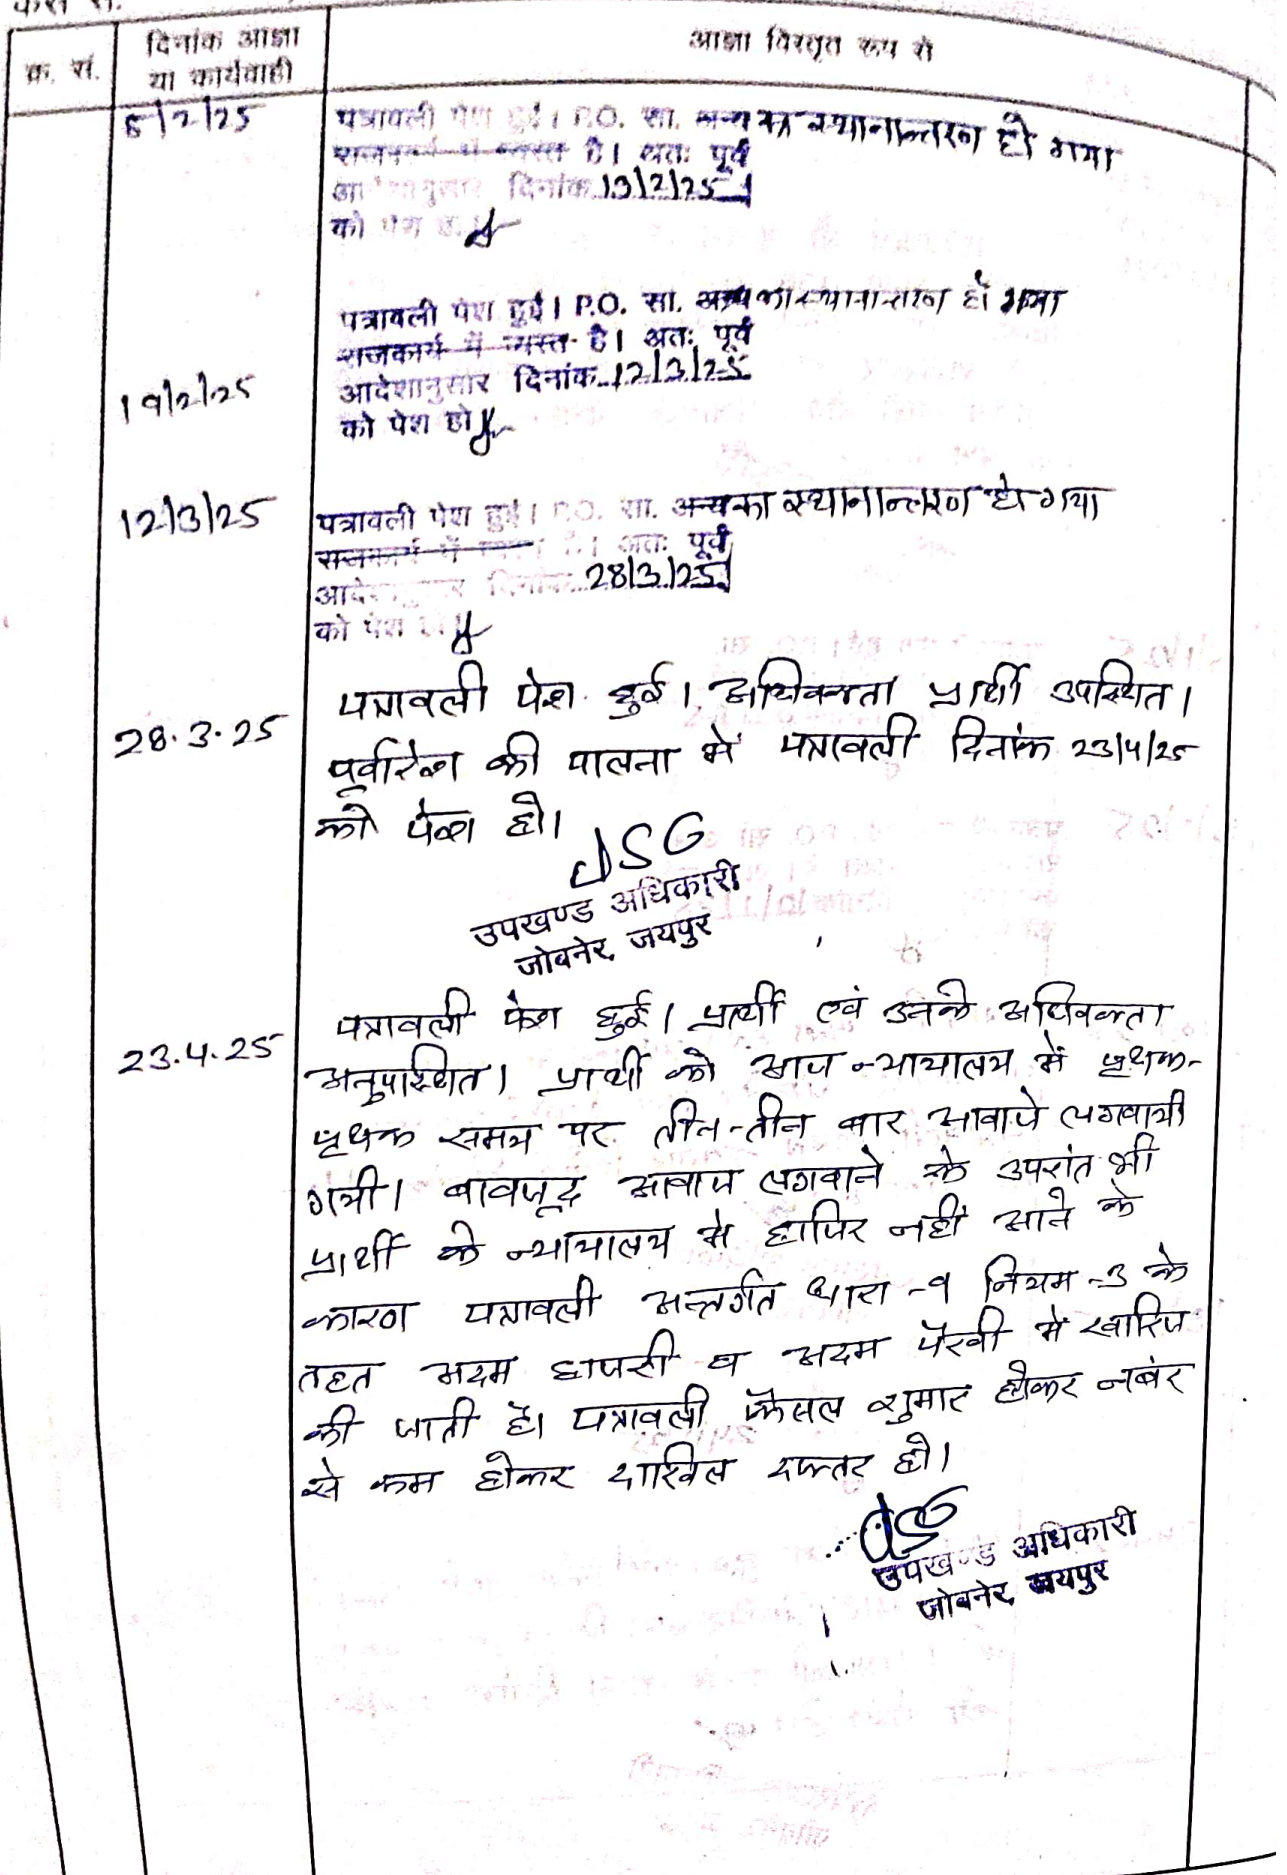 केस सं.
क्र. सं.
दिनांक आज्ञा
या कार्यवाही
आज्ञा विस्तृत रूप से
5/2/25
पत्रावली पेश हुई। P.O. सा. अन्य का स्थानान्तरण हो गया
राजकार्य में व्यस्त है। अतः पूर्व
आदेशानुसार दिनांक 19/2/25
को पेश हो
पत्रावली पेश हुई। P.O. सा. अन्य का स्थानान्तरण हो गया
राजकार्य में व्यस्त है। अतः पूर्व
19/2/25
आदेशानुसार दिनांक 12/3/25
को पेश हो
12/3/25
पत्रावली पेश हुई। P.O. सा. अन्य का स्थानान्तरण हो गया
राजकार्य में व्यस्त है। अतः पूर्व
आदेशानुसार दिनांक 28/3/25
को पेश हो
पत्रावली पेश हुई। अधिवक्ता प्रार्थी उपस्थित।
28.3.25
पूर्वादेश की पालना में पत्रावली दिनांक 23/4/25
को पेश हो।
उपखण्ड अधिकारी
जोबनेर, जयपुर
पत्रावली पेश हुई। प्रार्थी एवं उनके अधिवक्ता
23.4.25
अनुपस्थित। प्रार्थी को आज न्यायालय में पृथक-
पृथक समय पर तीन-तीन बार आवाजे लगवायी
गयी। बावजूद आवाज लगवाने के उपरांत भी
प्रार्थी के न्यायालय में हाजिर नहीं आने के
कारण पत्रावली अन्तर्गत धारा-9 नियम-3 के
तहत अदम हाजरी व अदम पैरवी में खारिज
की जाती है। पत्रावली फैसल शुमार होकर नबंर
से कम होकर दाखिल दफ्तर हो।
उपखण्ड अधिकारी
जोबनेर, जयपुर